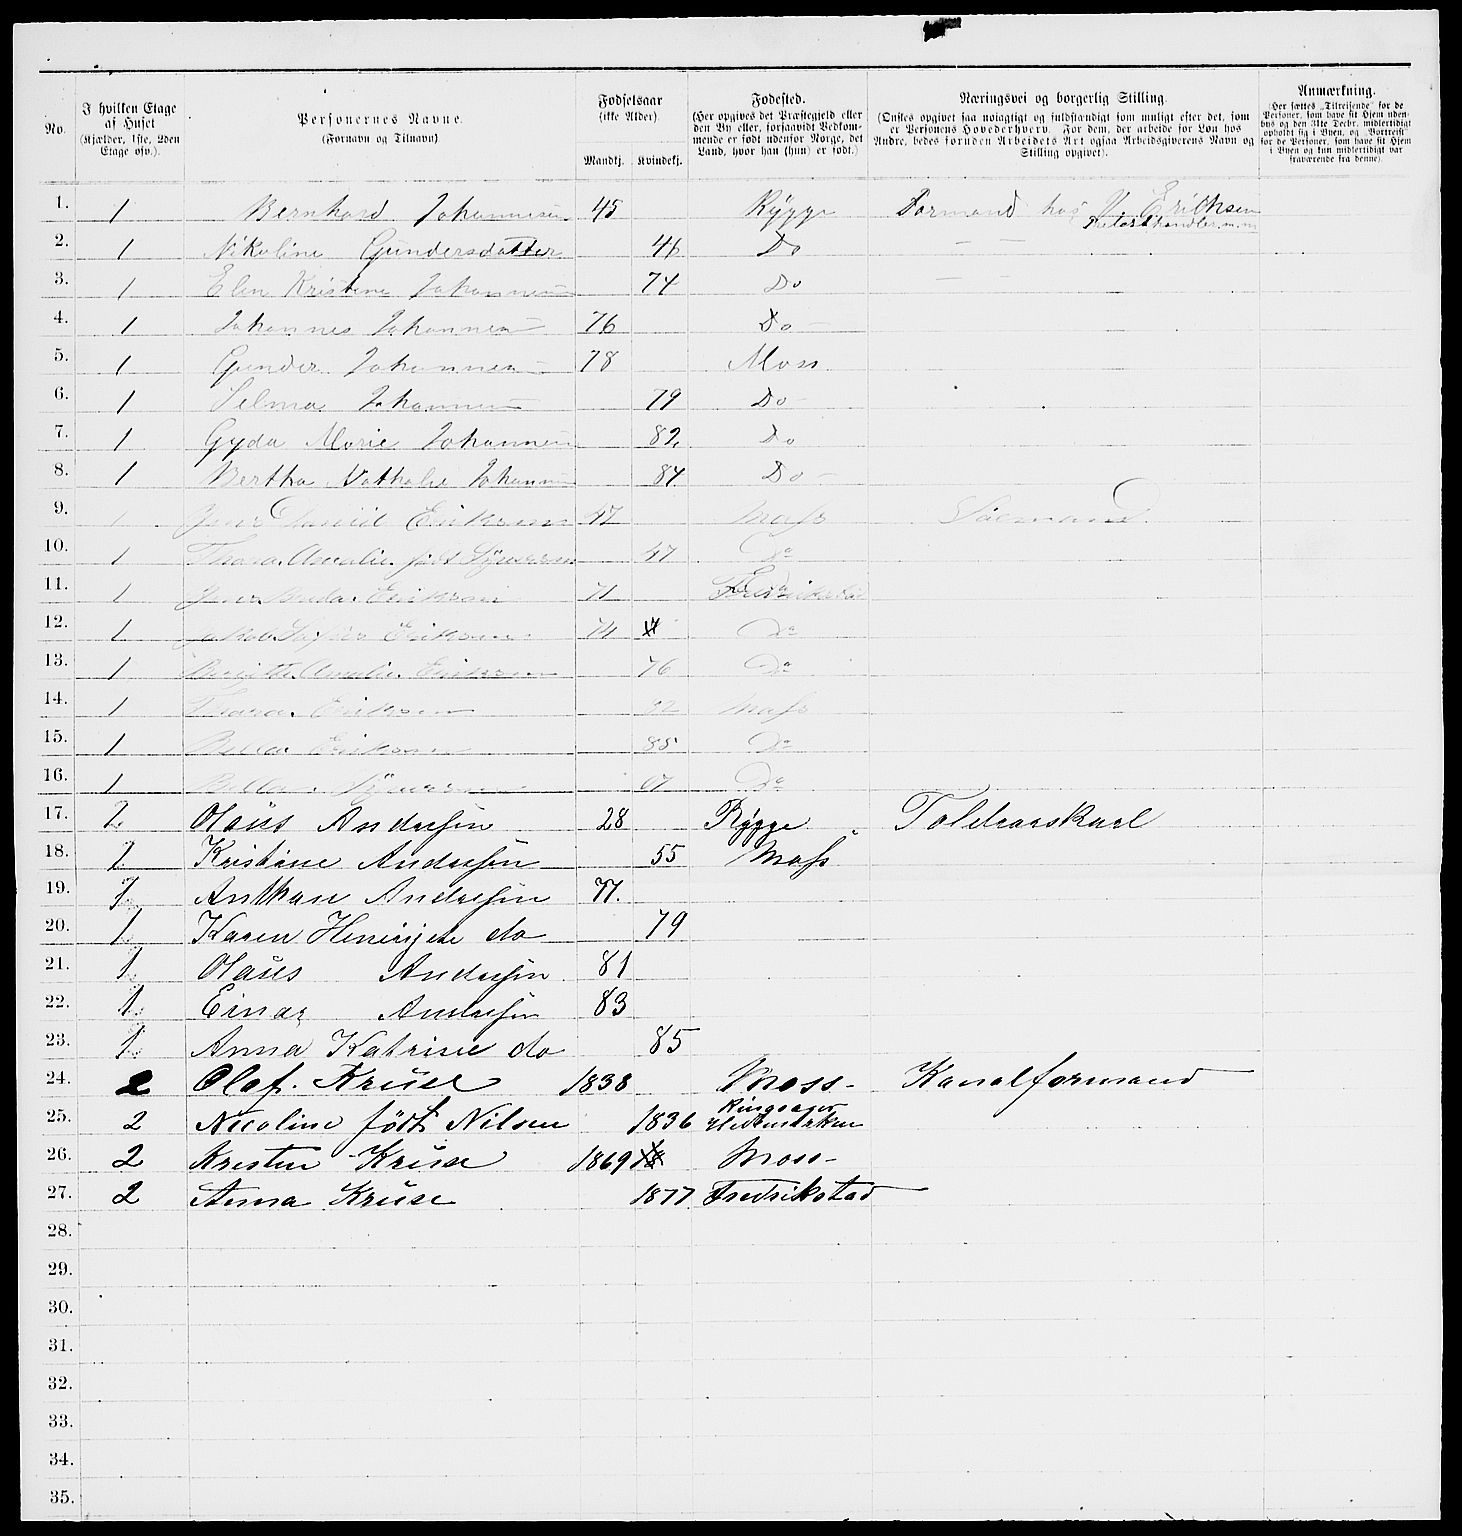 No. | I hvilken Etage af Huset (Kjælder, 1ste, 2den Etage osv.). | Personernes Navne. (Fornavn og Tilnavn) | Fødselsaar (ikke Alder). Mandkj. | Kvindekj. | Fødested. (Her opgives det Præstegjeld eller den By eller, forsaavidt Vedkommende er født udenfor Norge, det Land, hvor han (hun) er født.) | Næringsvei og borgerlig Stilling. (Ønskes opgivet saa nøiagtigt og fuldstændigt som muligt efter det, som er Personens Hovederhverv. For dem, der arbeide for Løn hos Andre, bedes foruden Arbeidets Art ogsaa Arbeidsgiverens Navn og Stilling opgivet). | Anmærkning. (Her sættes „Tilreisende" for de Personer, som have sit Hjem udenbys og den 31te Decbr. midlertidigt opholdt sig i Byen, og „Bortreist" for de Personer, som have sit Hjem i Byen og kun midlertidigt var fraværende fra denne).
1. 1 Bernhard Johannesen 45 Rygge Formand hos Eriksen
2. 1 Nikoline Gundersdatter 46 Do — —
3. 1 Elen Kristine Johannesen 74 Do — —
4. 1 Johannes Johannesen 76 Do
5. 1 Gunder Johannesen 78 Moss
6. 1 Selma Johannesen 79 Do
7. 1 Gyda Marie Johannesen 82 Do
8. 1 Bertha Nathalie Johannesen 84 Do
9. 1 Eriksen 47 Moss Sømand
10. 1 Thora Amalie født 47 Do
11. 1 Eriksen 71 Fredrikstad
12. 1 Eriksen 74 Do
13. 1 Amalie Eriksen 76 Do
14. 1 Thora Eriksen 82 Moss
15. 1 Eriksen 85 Do
16. 1 67 Do
17. Olaüs Andresen 28 Rygge
18. Kristine Andresen 55 Moss
19. Anthon Andresen 77.
20. 1 Karen do 79
21. 1 Olaüs Andresen 81
22. 1 Einar Andresen 83
23. 1 Anna Katrine do 85
24. 2 Olaf. Krüse 1838 Moss- Kanalformand
25. 2 Nicoline født Nilsen 1836 Ringsager Hedemarken
26. 2 Kresten Krüse 1869 Moss-
27. 2 Anna Krüse 1877 Fredrikstad
28.
29.
30.
31.
32.
33.
34.
35.